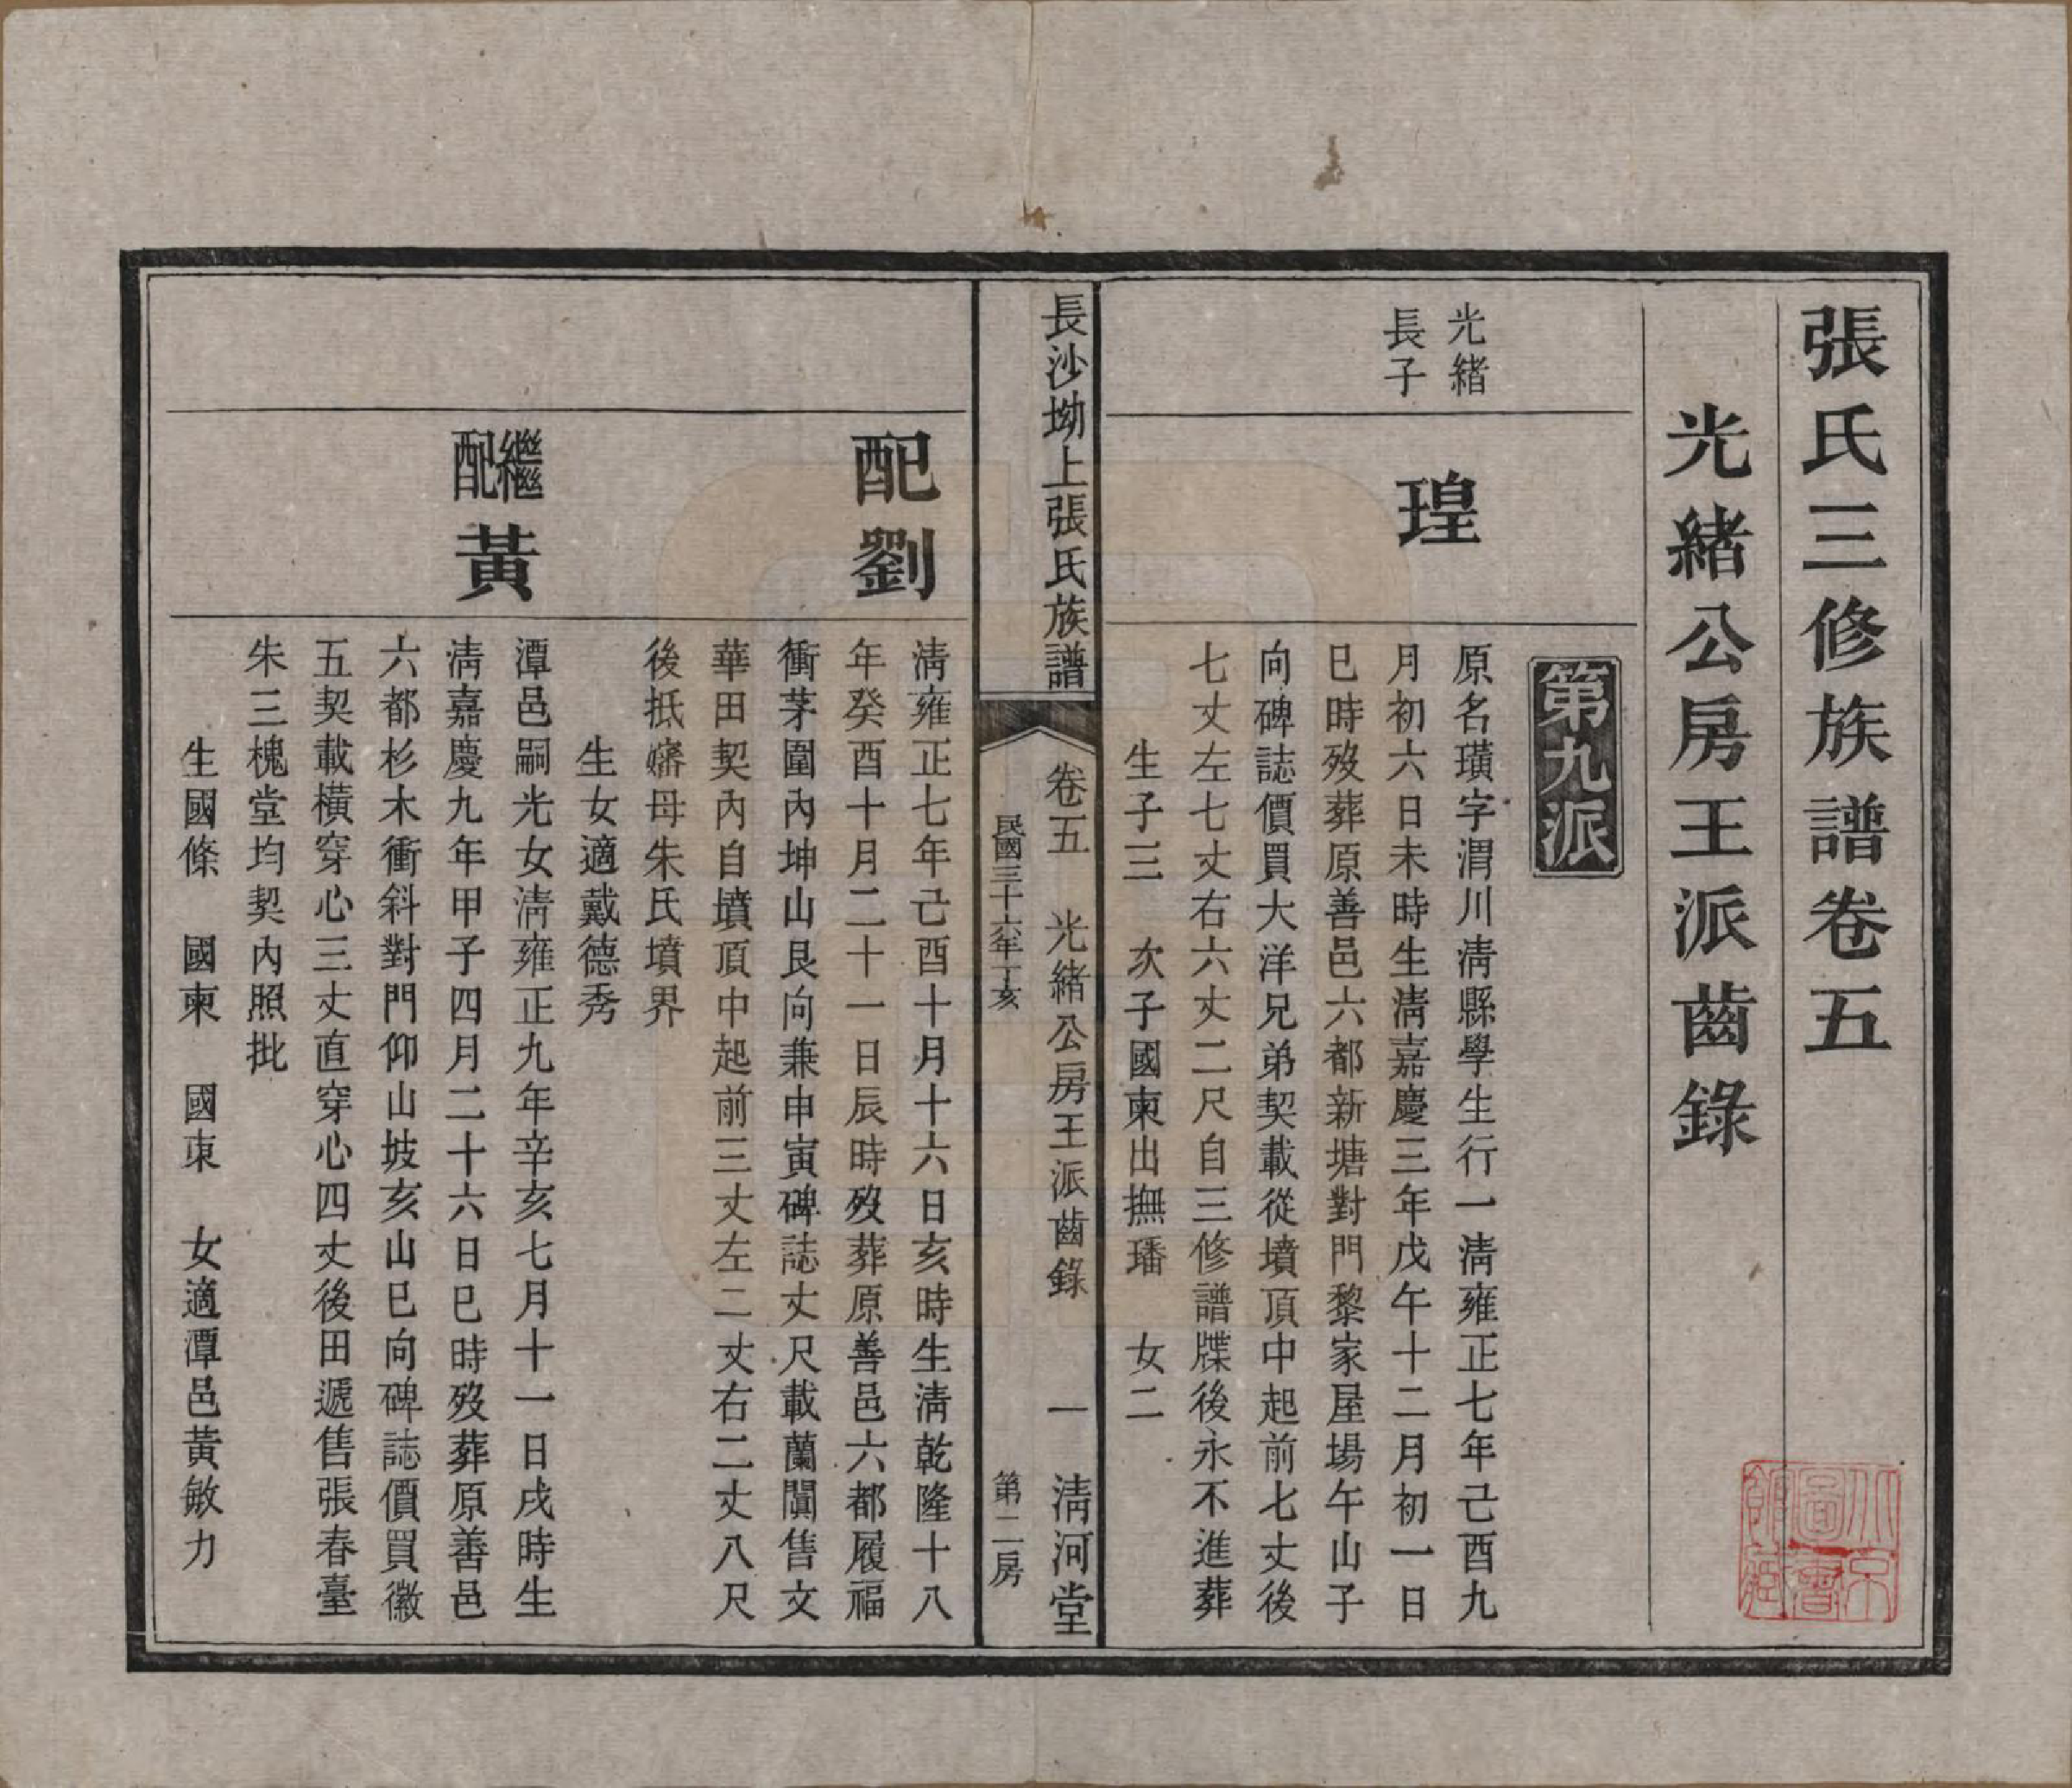 張氏三修族譜卷五
光緒公房王派齒錄
第九派
光緒
長子
瑝
原名璜字渭川淸縣學生行一淸雍正七年己酉九
月初六日未時生淸嘉慶三年戊午十二月初一日
巳時歿葬原善邑六都新塘對門黎家屋場午山子
向碑誌價買大洋兄弟契載從墳頂中起前七丈後
七丈左七丈右六丈二尺自三修譜牒後永不進葬
生子三　次子國柬出撫璠　女二
長沙坳上張氏族譜
卷五　光緒公房王派齒錄　一　淸河堂
民國三十六年丁亥　第二房
配劉
淸雍正七年己酉十月十六日亥時生淸乾隆十八
年癸酉十月二十一日辰時歿葬原善邑六都履福
衝茅圍內坤山艮向兼申寅碑誌丈尺載蘭闐售文
華田契內自墳頂中起前三丈左二丈右二丈八尺
後抵嬸母朱氏墳界
生女適戴德秀
繼配黃
潭邑嗣光女淸雍正九年辛亥七月十一日戌時生
淸嘉慶九年甲子四月二十六日巳時歿葬原善邑
六都杉木衝斜對門仰山坡亥山巳向碑誌價買徽
五契載橫穿心三丈直穿心四丈後田遞售張春臺
朱三槐堂均契內照批
生國條　國柬　國東　女適潭邑黃敏力